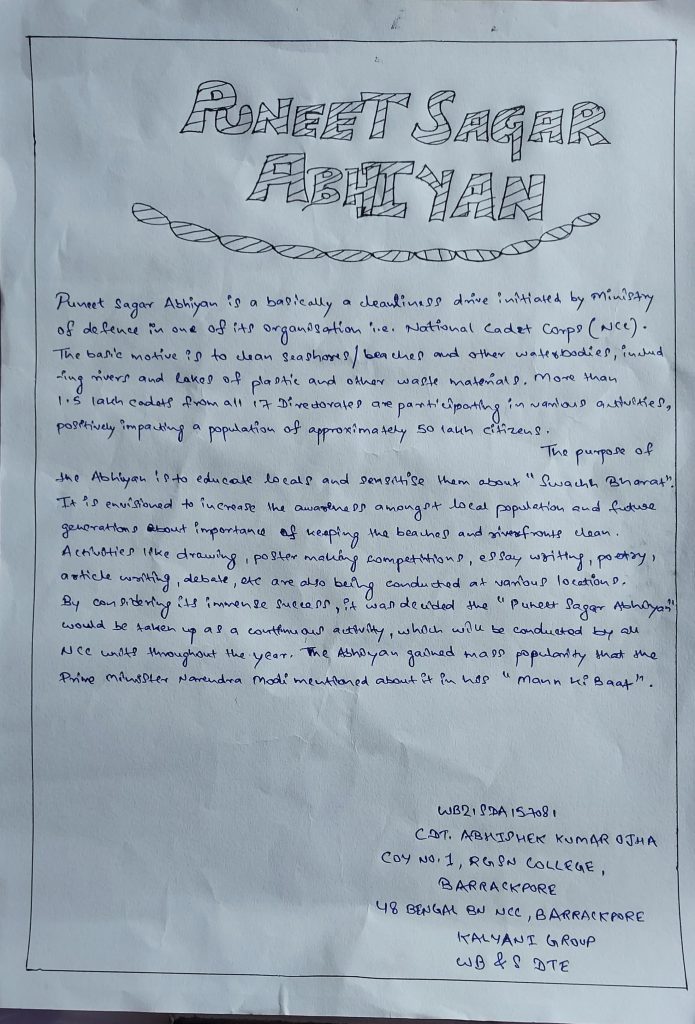 PUNEET SAGAR
ABHIYAN
Puneet Sagar Abhiyan is a basically a cleanliness drive initiated by Ministry
of defence in one of its organisation i.e. National Cadet Corps (NCC).
The basic motive is to clean seashores/beaches and other waterbodies, includ
-ing rivers and lakes of plastic and other waste materials. More than
1.5 lakh cadets from all 17 Directorates are participating in various activities,
positively impacting a population of approximately 50 lakh citizens.
The purpose of
the Abhiyan is to educate locals and sensitise them about "Swachh Bharat".
It is envisioned to increase the awareness amongst local population and future
generations about importance of keeping the beaches and riverfronts clean.
Activities like drawing, poster making competitions, essay writing, poetry,
article writing, debate, etc are also being conducted at various locations.
By considering its immense success, it was decided the "Puneet Sagar Abhiyan"
would be taken up as a continuous activity, which will be conducted by all
NCC units throughout the year. The Abhiyan gained mass popularity that the
Prime Minister Narendra Modi mentioned about it in his "Mann Ki Baat".
WB21SDA157081
CDT. ABHISHEK KUMAR OJHA
COY NO. 1, RGSN COLLEGE,
BARRACKPORE
48 BENGAL BN NCC, BARRACKPORE
KALYANI GROUP
WB & S DTE